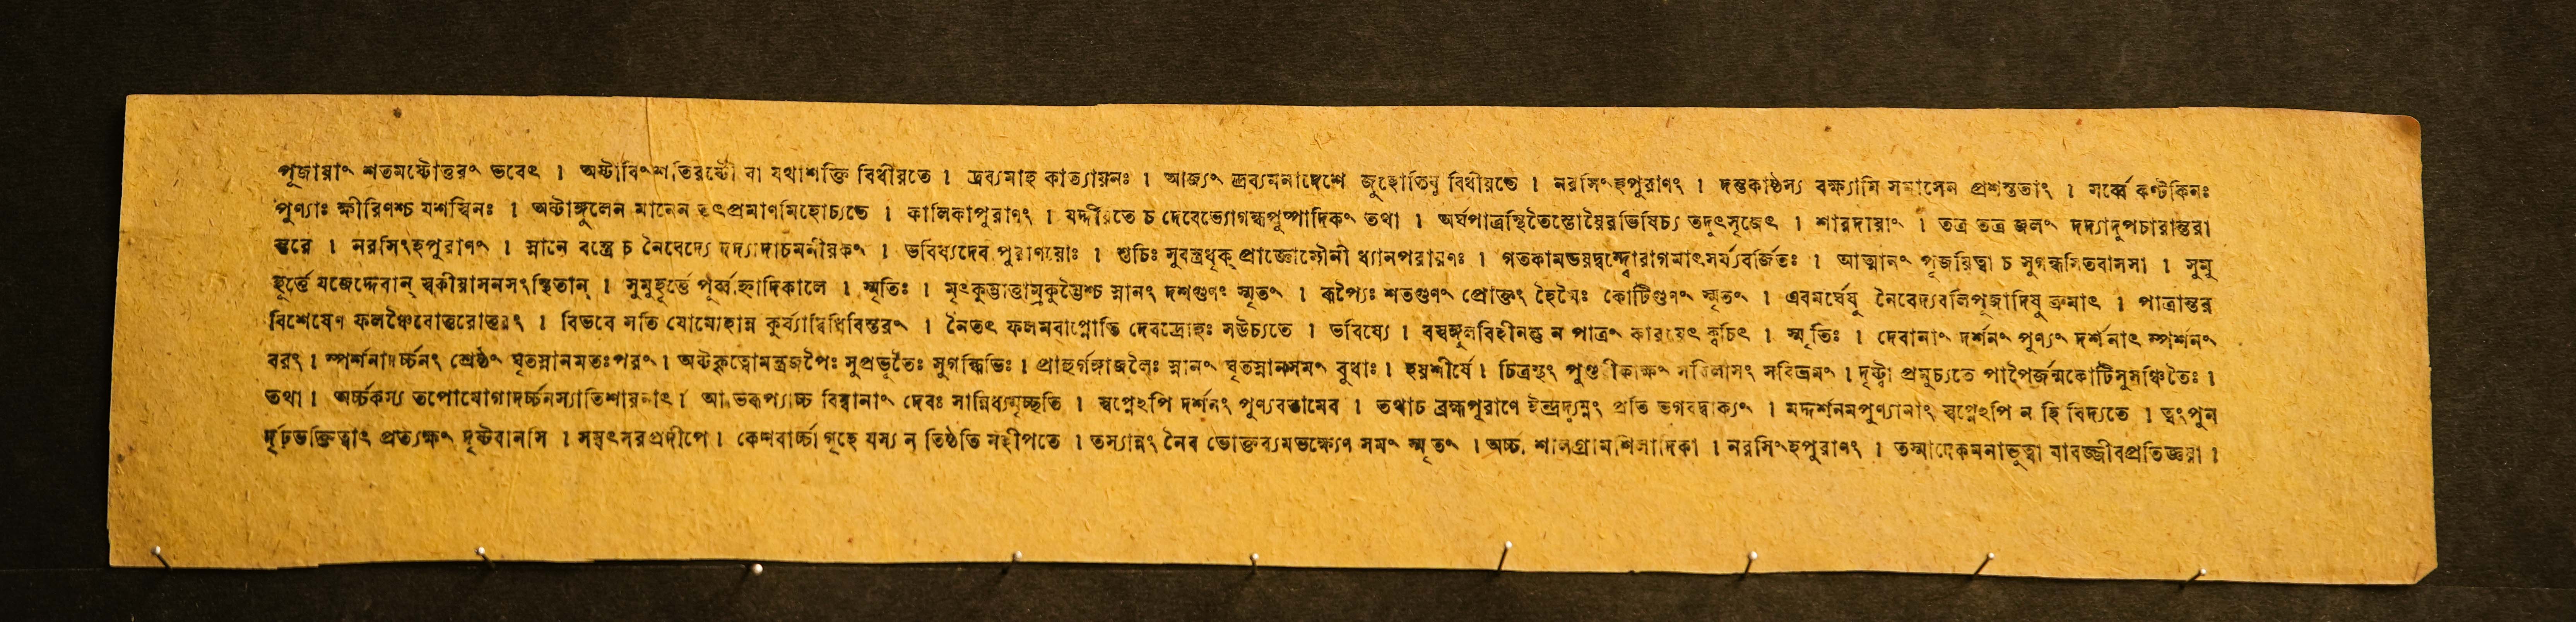 পূজায়াং শতমষ্টোত্তরং ভবেৎ । অষ্টাবিংশতিরষ্টৌ বা যথাশক্তি বিধীয়তে । দ্রব্যমাহ কাত্যায়নঃ । আজ্যং দ্রব্যমনাদেশে জুহোতিষু বিধীয়তে । নরসিংহপুরাণং । দন্তকাষ্ঠস্য বক্ষ্যামি সমাসেন প্রশস্ততাং । সর্ব্বে কণ্টকিনঃ
পুণ্যাঃ ক্ষীরিণশ্চ যশস্বিনঃ । অষ্টাঙ্গুলেন মানেন তৎপ্রমাণমিহোচ্যতে । কালিকাপুরাণং । যদ্দীয়তে চ দেবেভ্যোগন্ধপুষ্পাদিকং তথা । অর্ঘপাত্রস্থিতৈস্তোয়ৈরভিষিচ্য তদুৎসৃজেৎ । শারদায়াং । তত্র তত্র জলং দদ্যাদুপচারান্তরা
ন্তরে । নরসিংহপুরাণং । স্নানে বস্ত্রে চ নৈবেদ্যে দদ্যাদাচমনীয়কং । ভবিষ্যদেব পুরাণয়োঃ । শুচিঃ সুবস্ত্রধৃক্ প্রাজ্ঞোমৌনী ধ্যানপরায়ণঃ । গতকামভয়দ্বন্দ্বোরাগমাৎসর্য্যবর্জিতঃ । আত্মানং পূজয়িত্বা চ সুগন্ধসিতবাসসা । সুমু
হূর্ত্তে যজেদ্দেবান্ স্বকীয়াসনসংস্থিতান্ । সুমুহূর্ত্তে পূর্ব্বাহ্নাদিকালে । স্মৃতিঃ । মৃৎকুম্ভাত্তাম্রকুম্ভৈশ্চ স্নানং দশগুণং স্মৃতং । রূপ্যৈঃ শতগুণং প্রোক্তং হৈমৈঃ কোটিগুণং স্মৃতং । এবমর্ঘেষু নৈবেদ্যবলিপূজাদিষু ক্রমাৎ । পাত্রান্তর
বিশেষেণ ফলঞ্চৈবোত্তরোত্তরং । বিভবে সতি যোমোহান্ন কুর্য্যাদ্বিধিবিস্তরং । নৈতৎ ফলমবাপ্নোতি দেবদ্রোহঃ সউচ্যতে । ভবিষ্যে । বস্বঙ্গুলবিহীনন্তু ন পাত্রং কারয়েৎ ক্বচিৎ । স্মৃতিঃ । দেবানাং দর্শনং পুণ্যং দর্শনাৎ স্পর্শনং
বরং । স্পর্শনাদর্চ্চনং শ্রেষ্ঠং ঘৃতস্নানমতঃপরং । অষ্টকৃত্বোমন্ত্রজপৈঃ সুপ্রভূতৈঃ সুগন্ধিভিঃ । প্রাহুর্গঙ্গাজলৈঃ স্নানং ঘৃতস্নানসমং বুধাঃ । হয়শীর্ষে । চিত্রস্থং পুণ্ডরীকাক্ষং সবিলাসং সবিভ্রমং । দৃষ্ট্বা প্রমুচ্যতে পাপৈর্জন্মকোটিসুসঞ্চিতৈঃ ।
তথা । অর্চ্চকস্য তপোযোগাদর্চ্চনস্যাতিশায়নাৎ । আভিরূপ্যাচ্চ বিম্বানাং দেবঃ সান্নিধ্যমৃচ্ছতি । স্বপ্নেঽপি দর্শনং পুণ্যবতামেব । তথাচ ব্রহ্মপুরাণে ইন্দ্রদ্যুম্নং প্রতি ভগবদ্বাক্যং । মদ্দর্শনমপুণ্যানাং স্বপ্নেঽপি ন হি বিদ্যতে । ত্বংপুন
র্দৃঢ়ভক্তিত্বাৎ প্রত্যক্ষং দৃষ্টবানসি । সম্বৎসরপ্রদীপে । কেশবার্চ্চা গৃহে যস্য ন তিষ্ঠতি মহীপতে । তস্যান্নং নৈব ভোক্তব্যমভক্ষ্যেণ সমং স্মৃতং । অর্চ্চা শালগ্রামশিলাদিকা । নরসিংহপুরাণং । তস্মাদেকমনাভূত্বা যাবজ্জীবপ্রতিজ্ঞয়া ।